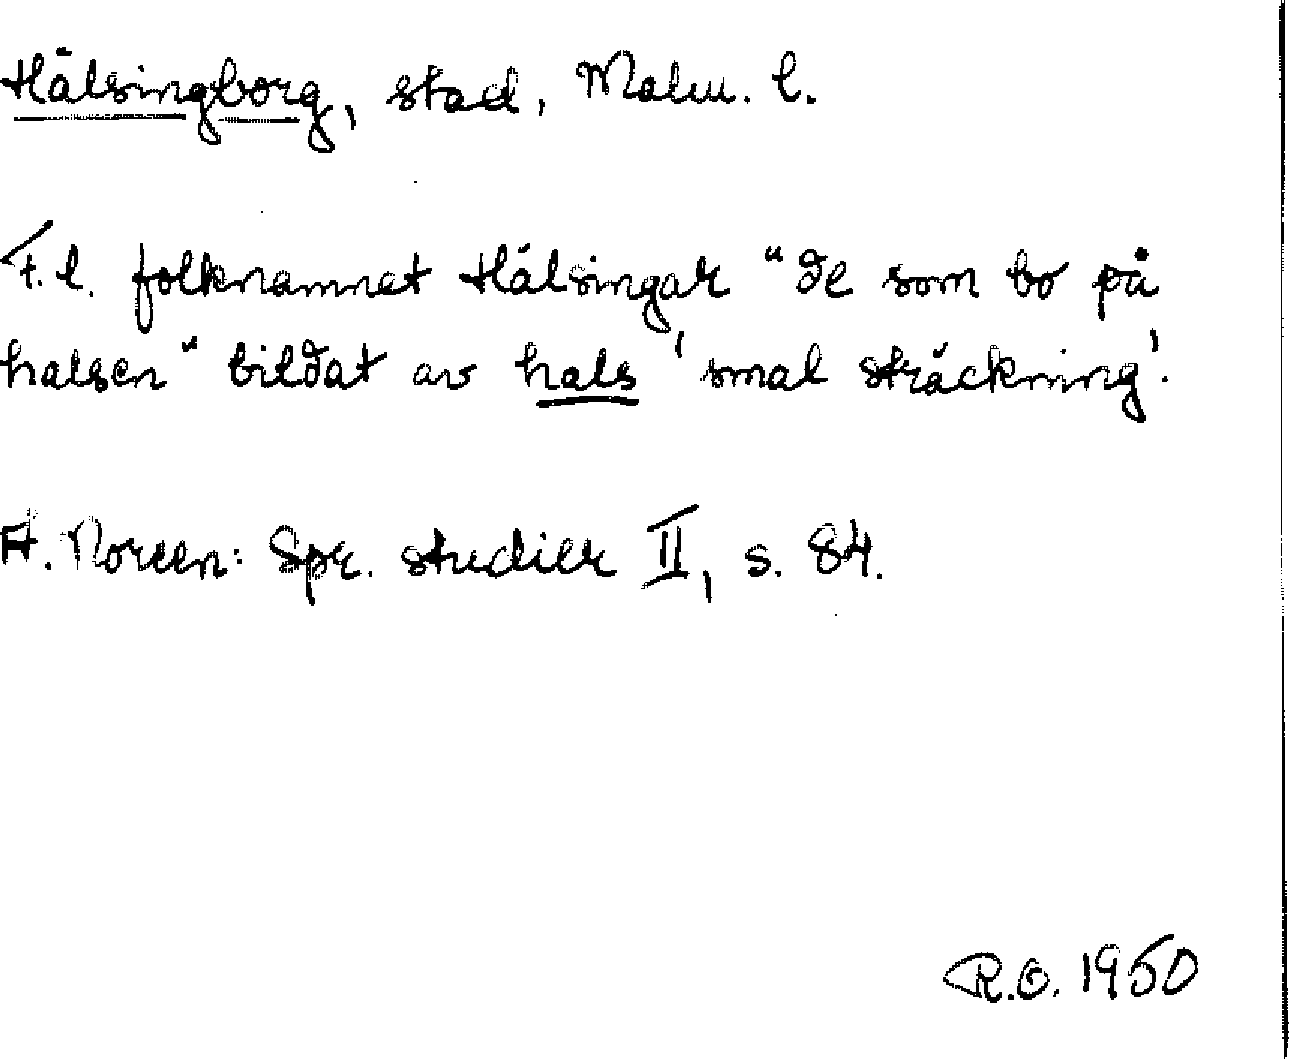 Hälsingborg, stad, Malm. l.
F. l. folknamnet Hälsingar "de som bo på
halsen" bildat av hals 'smal sträckning'.
A. Noreen: Spr. studier II, s. 84.
R.O. 1950